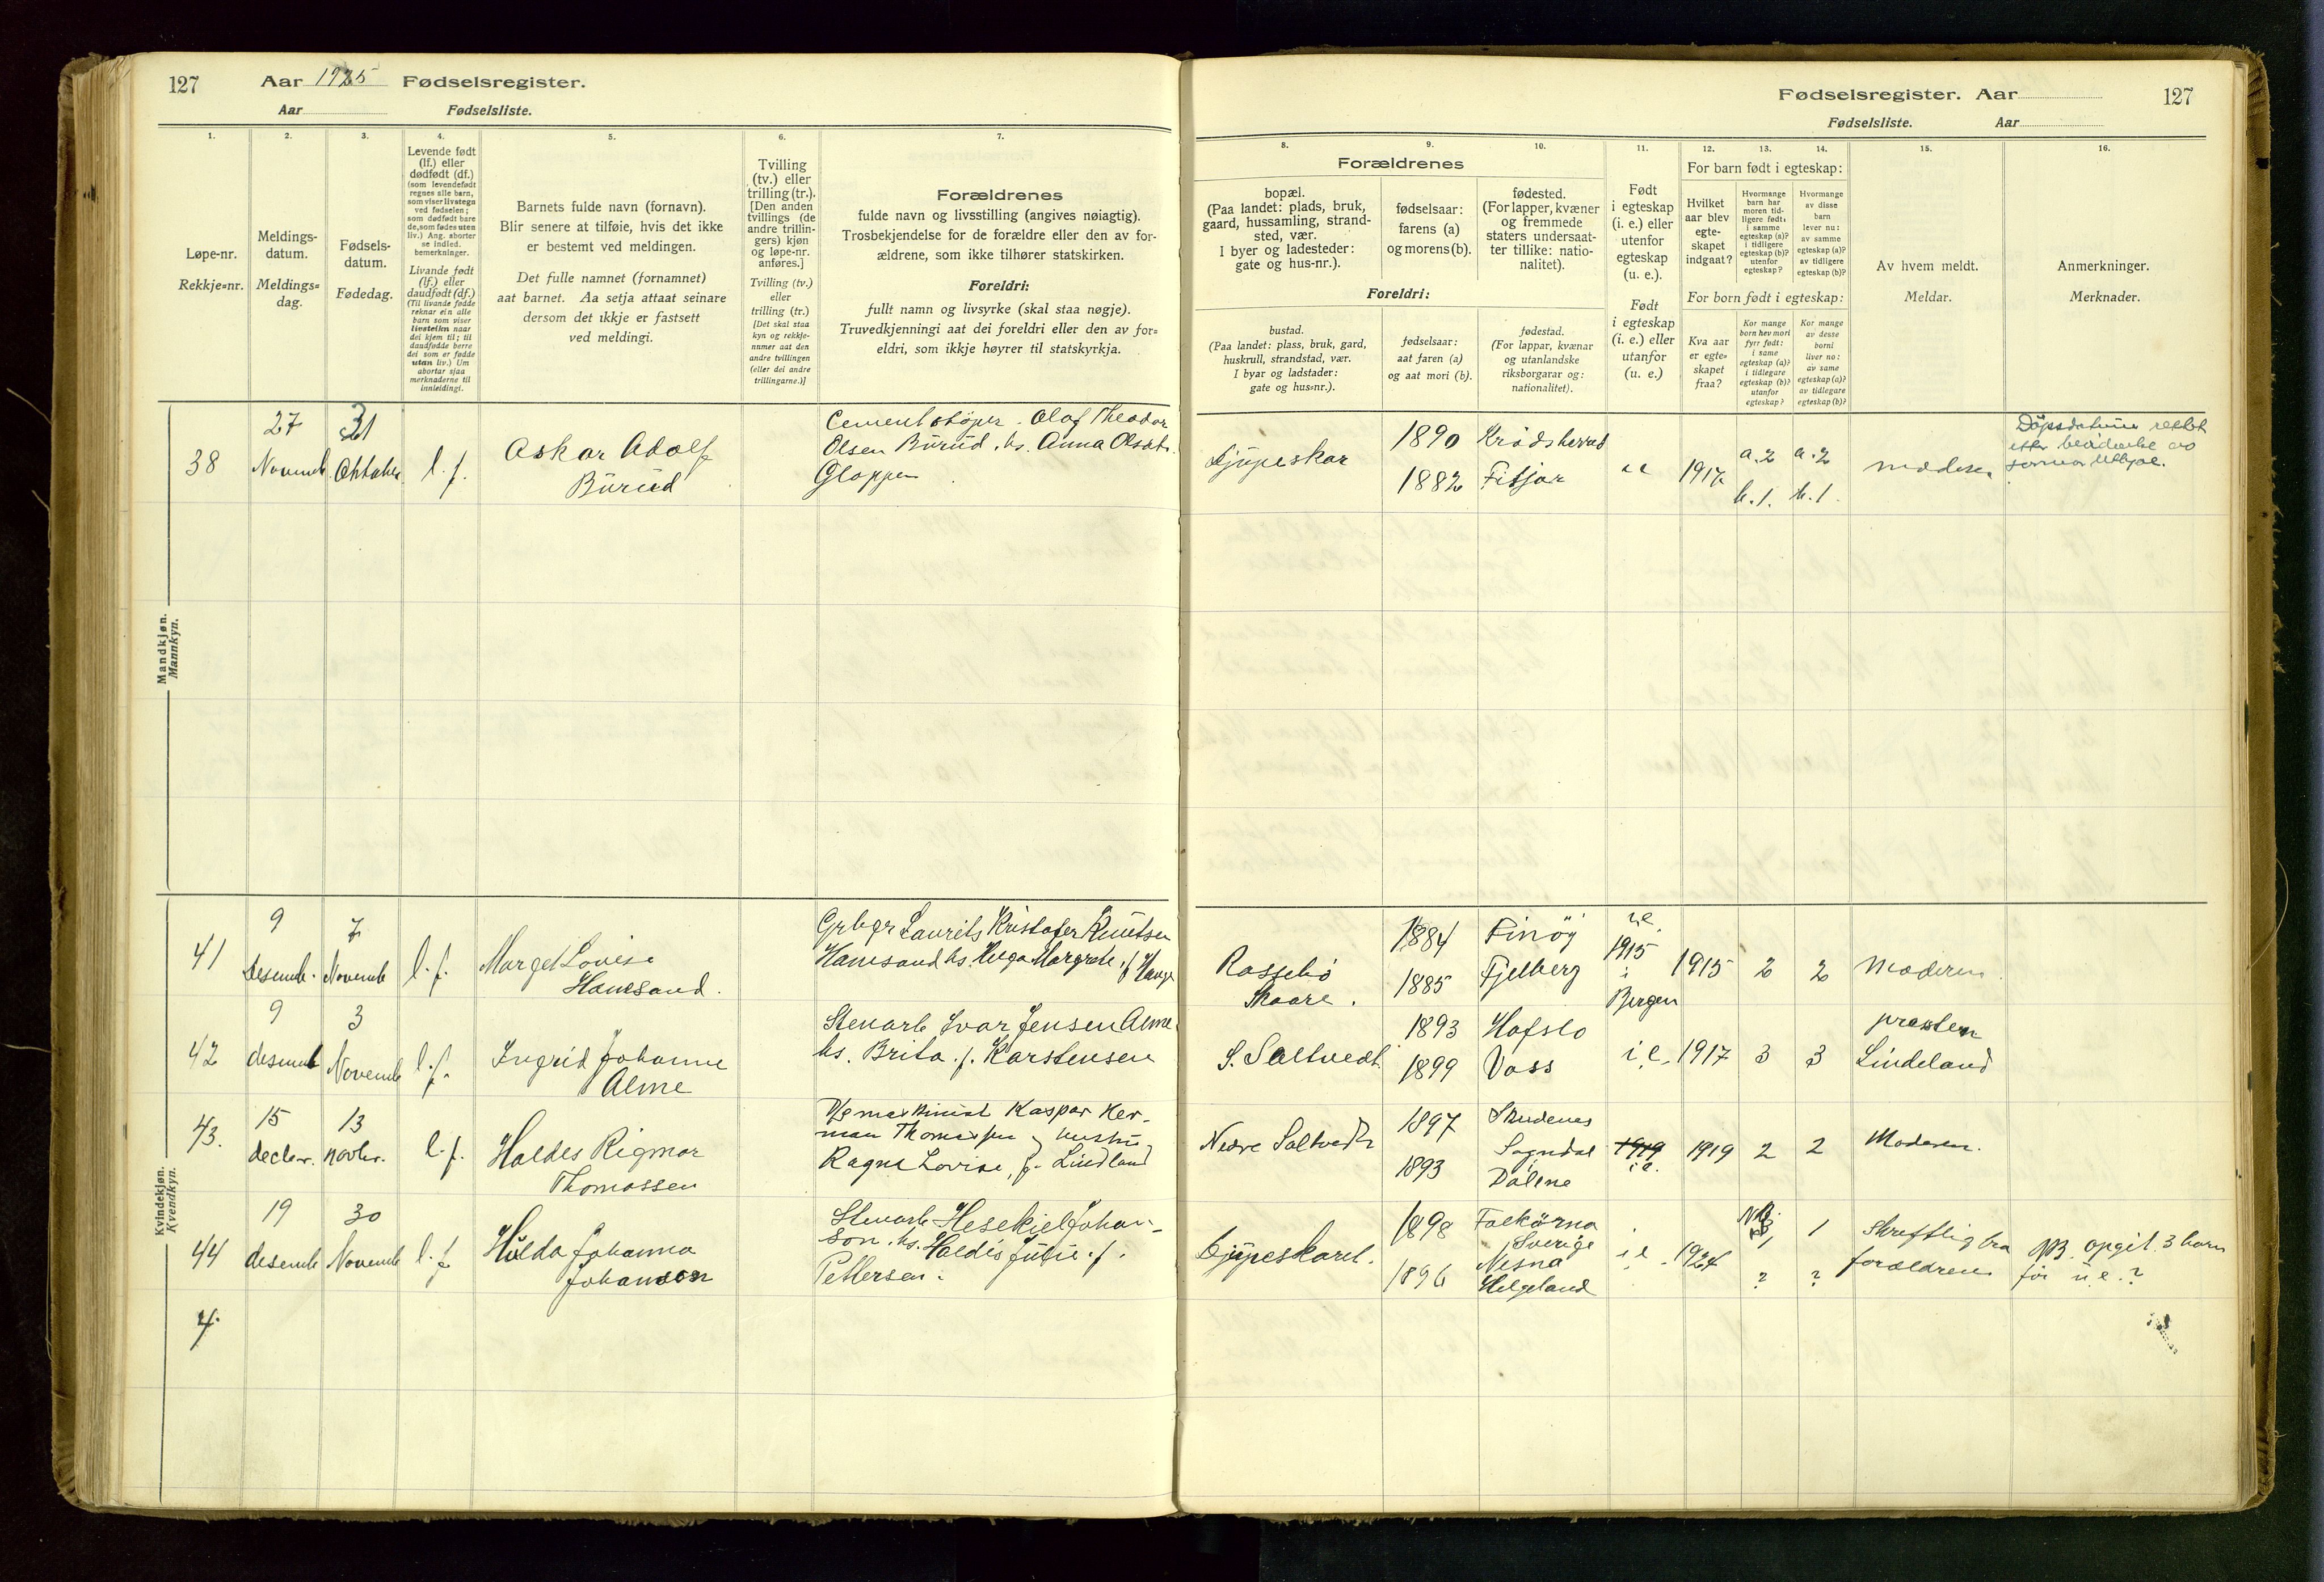 127 Aar 1925 Fødselsregister.
Aar Fødselsliste.
1. 2. 3. 4. 5. 6. 7.
Løpe-nr.
Rekkje=nr.
Meldings-
datum.
Meldings=
dag.
Fødsels-
datum.
Fødedag.
Levende født
(lf.) eller
dødfødt (df.)
(som levendefødt
regnes alle barn,
som viser livstegn
ved fødselen;
som dødfødt bare
de, som fødes uten
liv.) Ang. aborter
se indled.
bemerkninger.
Livande født
(lf.) eller
daudfødt (df.)
(Til livande fødde
reknar ein alle
barn som viser
livsteikn naar
dei kjem til; til
daudfødde berre
dei som er fødde
utan liv.) Um
abortar sjaa
merknaderne til
innleidingi.
Barnets fulde navn (fornavn).
Blir senere at tilføie, hvis det ikke
er bestemt ved meldingen.
Det fulle namnet (fornamnet)
aat barnet. Aa setja attaat seinare
dersom det ikkje er fastsett
ved meldingi.
Tvilling
(tv.) eller
trilling (tr.).
[Den anden
tvillings (de
andre trillin-
gers) kjøn
og løpe-nr.
anføres.]
Tvilling (tv.)
eller
trilling (tr.)
[Det skal staa
kyn og rekkje-
numer aat den
andre tvillingen
(eller dei andre
trillingarne.)]
Forældrenes
fulde navn og livsstilling (angives nøiagtig).
Trosbekjendelse for de forældre eller den av for-
ældrene, som ikke tilhører statskirken.
Foreldri:
fullt namn og livsyrke (skal staa nøgje).
Truvedkjenningi aat dei foreldri eller den av for=
eldri, som ikkje høyrer til statskyrkja.
Mandkjøn.
Mannkyn.
38
27
Novemb
31
Oktober
l. f.
Askar Adolf
Burud
Cementstøper. Olaf Theodor
Olsen Burud. hs. Anna Olsdt.
Gloppen
Kvindekjøn.
Kvendkyn.
41
9
Desemb.
7
Novemb
l. f.
Marget Lovise
Hanesand.
Grbgr Laurits Kristofer Knutsen
Hanesand hs. Helga Margrete, f. Hauge
42
9
desemb
3
Novemb
l. f.
Ingrid Johanne
Alme
Stenarb Ivar Jensen Alme
hs. Brita. f. Karstensen
43.
15
decbr.
13
novbr.
l. f.
Haldes Rigmor
Thomassen
Kaspar Her-
man Thomassen
Ragna Lovise, f. Lindland
44
19
desemb
30
Novemb
l. f
Hulda Johanna
Johanson
Stenarb Hesekiel Johan-
son. hs. Haldis Julie. f.
Pettersen.
4.
Fødselsregister. Aar 127
Fødselsliste. Aar
8. 9. 10. 11. 12. 13. 14. 15. 16.
Forældrenes
bopæl.
(Paa landet: plads, bruk,
gaard, hussamling, strand-
sted, vær.
I byer og ladesteder:
gate og hus-nr.).
fødselsaar:
farens (a)
og morens (b).
fødested.
(For lapper, kvæner
og fremmede
staters undersaat-
ter tillike: natio-
nalitet).
Foreldri:
bustad.
(Paa landet: plass, bruk, gard,
huskrull, strandstad, vær.
I byar og ladstader:
gate og hus=nr.).
fødselsaar:
aat faren (a)
og aat mori (b).
fødestad.
(For lappar, kvænar
og utanlandske
riksborgarar og:
nationalitet).
Født
i egteskap
(i. e.) eller
utenfor
egteskap
(u. e.).
Født
i egteskap
(i. e.) eller
utanfor
(u. e.)
For barn født i egteskap:
Hvilket
aar blev
egte-
skapet
indgaat?
Hvormange
barn har
moren tid-
ligere født:
i samme
egteskap (a)?
i tidligere
egteskap (b)?
utenfor
egteskap?
Hvormange
av disse
barn
lever nu:
av samme
egteskap (a)?
av tidligere
egteskap (b)?
For born født i egteskap:
Kva aar
er egte=
skapet
fraa?
Kor mange
born hev mori
fyrr født:
i same
egteskap (a)?
i tidlegare
egteskap (b)?
utanfor
egteskap?
Kor mange
av desse
borni
liver no:
av same
egteskap (a)?
av tidlegare
egteskap (b)?
Av hvem meldt.
Meldar.
Anmerkninger.
Merknader.
Djupeskar
1890
1882
Krødsherred
Fitjar
1917
a. 2
b. 1.
a. 2
b. 1.
moderen
Døpsdatum rettet
Rossebø
Skaare.
1884
1885
Finøy
Fjelberg
i.e.
1915
i
Bergen
1915
2
2
Moderen
S. Saltvedt
1893
1899
Hafslo
Voss
i. e.
1917
3
3
presten
Lindeland
Nedre Saltvedt
1897
1893
Skudenes
Sogndal
Dalene
1919
i e.
1919
2
2
Moderen.
Djupeskaret.
1898
1896
Falkörna
Sverige
Nesna
Helgeland
i. e.
1924
1
?
1
?
Skriftlig fra
foreldrene
NB. opgit. 3 barn
før u. e. ?